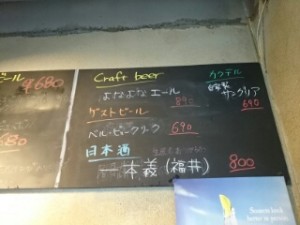 ビール
¥680
680
Craft beer
よなよなエール
890
ゲストビール
ベル・ビュークリーク 690
日本酒
一本義(福井) 800
カクテル
自家製
サングリア
690